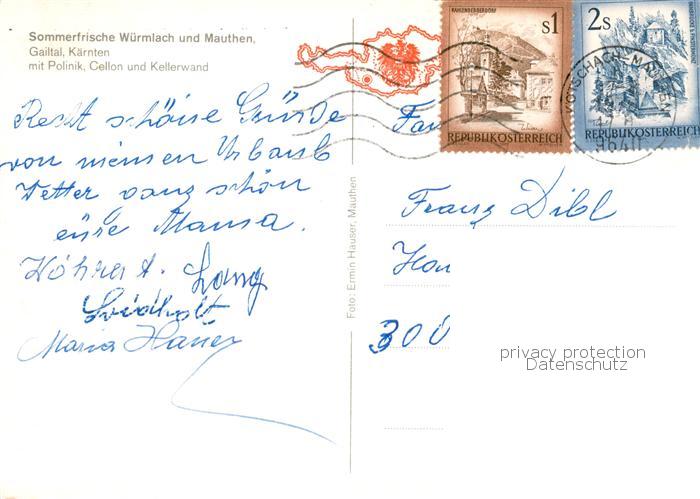 Sommerfrische Würmlach und Mauthen,
Gailtal, Kärnten
mit Polinik, Cellon und Kellerwand
Recht schöne Grüße
von meinen Urlaub
Wetter ganz schön
eure Mama.
Lang
Maria
Foto: Ermin Hauser, Mauthen
KAHLENBERGERDORF
s1
REPUBLIK ÖSTERREICH
2s
REPUBLIK ÖSTERREICH
KÖTSCHACH-MAUTHEN
9640
Fam
Franz Dibl
300
privacy protection
Datenschutz